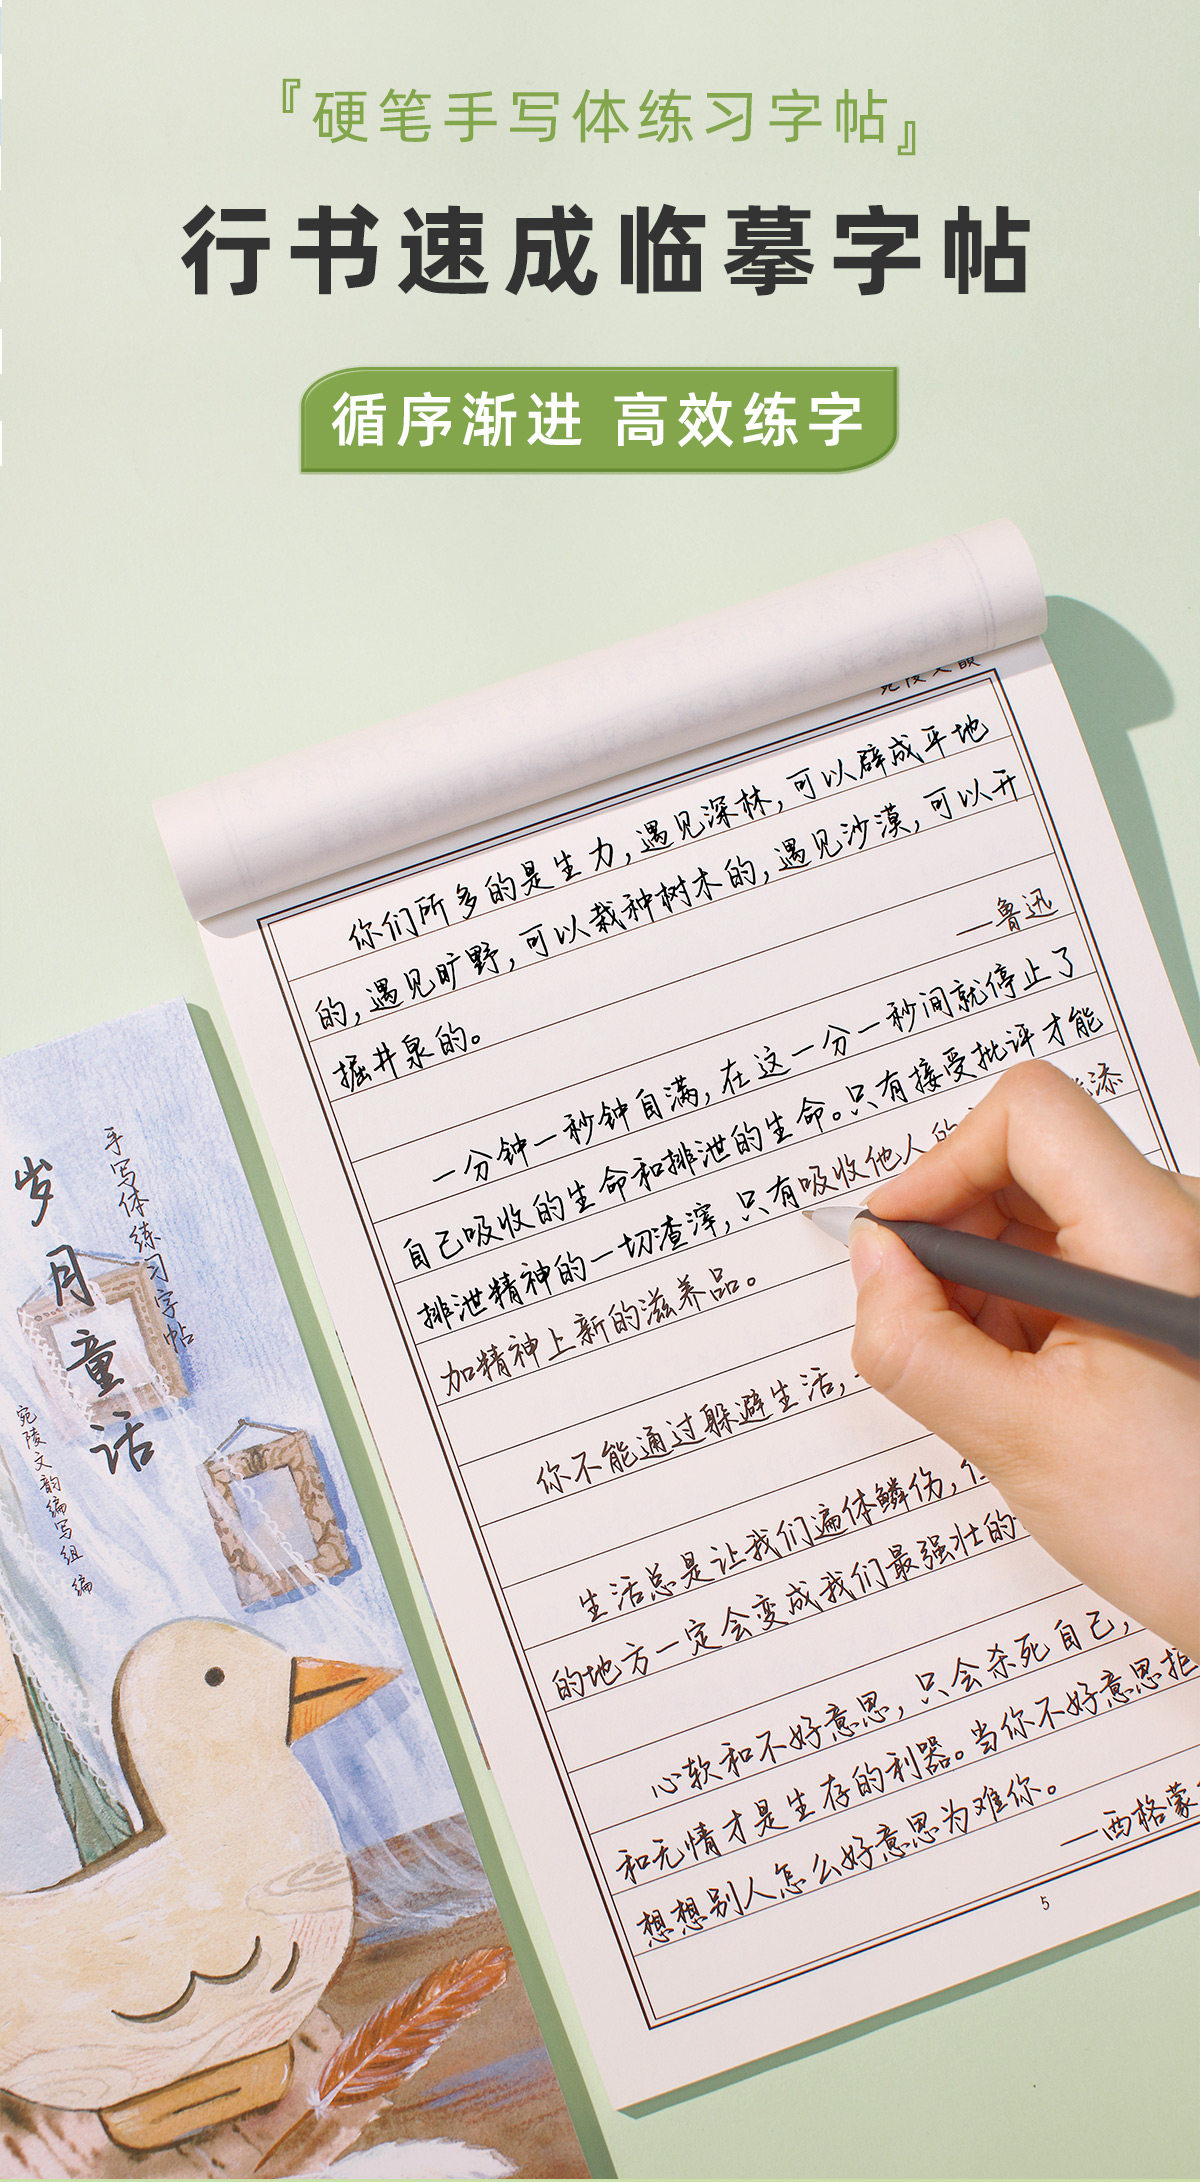 『硬笔手写体练习字帖』
行书速成临摹字帖
循序渐进 高效练字
你们所多的是生力，遇见深林，可以辟成平地
的，遇见旷野，可以栽种树木的，遇见沙漠，可以开
掘井泉的。
—鲁迅
一分钟一秒钟自满，在这一分一秒间就停止了
自己吸收的生命和排泄的生命。只有接受批评才能
排泄精神的一切渣滓，只有吸收他人的
添
加精神上新的滋养品。
你不能通过躲避生活，
生活总是让我们遍体鳞伤，
的地方一定会变成我们最强壮的
心软和不好意思，只会杀死自己，
和无情才是生存的利器。当你不好意思拒
想想别人怎么好意思为难你。
—西格蒙
5
手写体练习字帖
岁月童话
宛陵文韵编写组 编